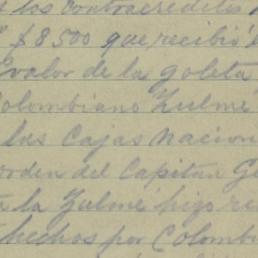 los contracreditos
" $8500 que recibió
valor de la goleta
Colombiano Zulme
las Cajas Nacion
orden del Capitan Ge
la Zulmé hizo re
hechos por Colombi